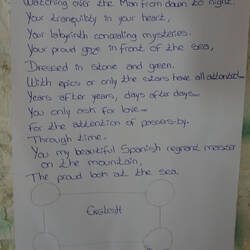 Watching over the Man from dawn to night.
Your tranquility in your heart,
Your labyrinth concealing mysteries.
Your proud gaze in front of the sea,
Dressed in stone and green.
With epics or only the stars have all attended—
Years after years, days after days—
You only ask for love—
for the attention of passers-by.
Through time.
You my beautiful Spanish regnant
on the mountain,
The proud look at the sea.
ENGLISH